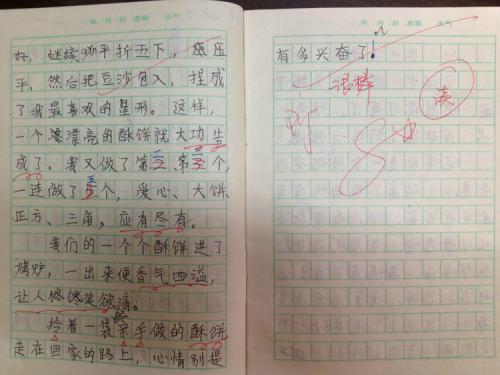 年 月 日 星期 天气
好，继续对平折五下，底压
平，然后把豆沙包入，捏成
了我最喜欢的星形。这样，
一个漂亮的酥饼就大功告
成了。我又做了第二、第三个，
一连做了五个，爱心、大饼、
正方、三角，应有尽有。
我们的一个个酥饼进了
烤炉，一出来便香气四溢，
让人馋涎欲滴。
拎着一袋亲手做的酥饼，
走在回家的路上，心情别提
年 月 日 星期 天气
有多兴奋了！
很棒